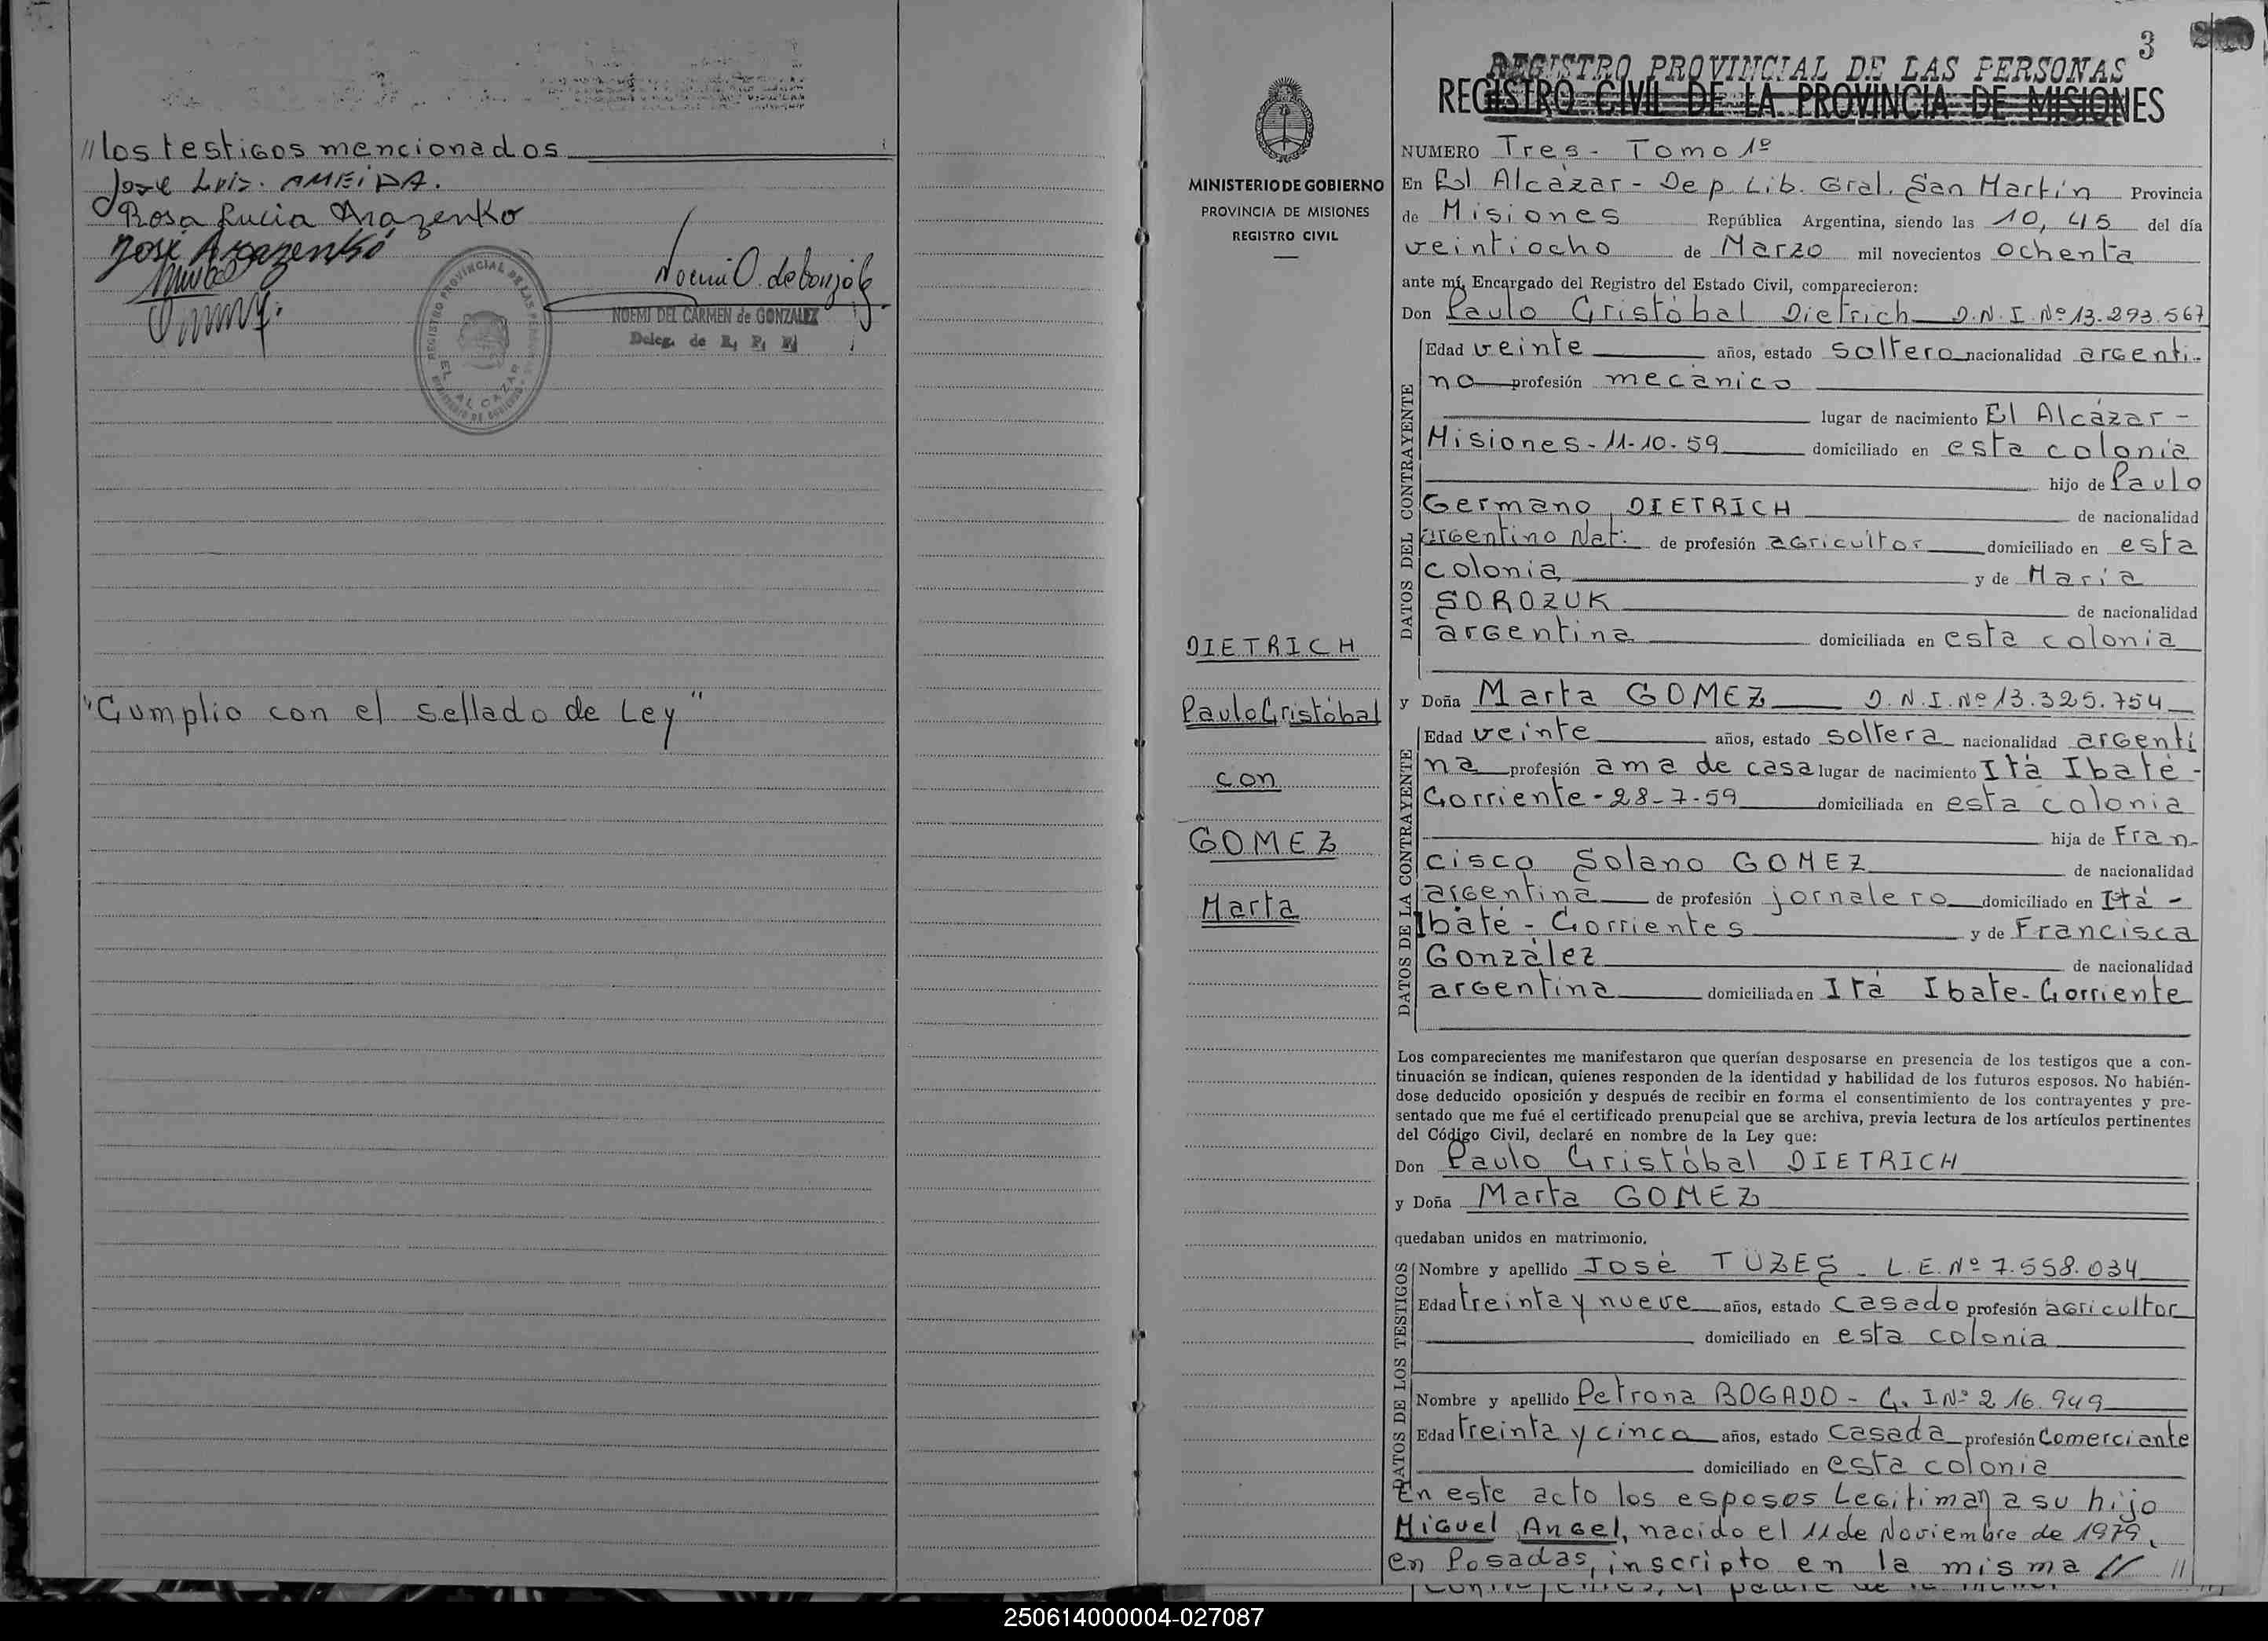 // los testigos mencionados
José Luis. AMEIDA.
Rosa Lucia Arazenko
José Arazenko
Noemi O. de Gonzalez
NOEMI DEL CARMEN de GONZALEZ
Deleg. de R. P. P.
REGISTRO PROVINCIAL DE LAS PERSONAS
EL ALCAZAR
MINISTERIO DE GOBIERNO
"Cumplio con el sellado de Ley"
MINISTERIO DE GOBIERNO
PROVINCIA DE MISIONES
REGISTRO CIVIL
DIETRICH
Paulo Cristóbal
con
GOMEZ
Marta
3
REGISTRO PROVINCIAL DE LAS PERSONAS
REGISTRO CIVIL DE LA PROVINCIA DE MISIONES
NUMERO Tres - Tomo 1º
En El Alcázar - Dep. Lib. Gral. San Martín Provincia
de Misiones República Argentina, siendo las 10,45 del día
veintiocho de Marzo mil novecientos ochenta
ante mí, Encargado del Registro del Estado Civil, comparecieron:
Don Paulo Cristóbal Dietrich D.N.I. Nº 13.293.567
DATOS DEL CONTRAYENTE
Edad veinte años, estado soltero nacionalidad argenti-
no profesión mecánico
lugar de nacimiento El Alcázar -
Misiones - 11-10-59 domiciliado en esta colonia
hijo de Paulo
Germano DIETRICH de nacionalidad
argentino Nat. de profesión agricultor domiciliado en esta
colonia y de María
SOROZUK de nacionalidad
argentina domiciliada en esta colonia
y Doña Marta GOMEZ D.N.I. Nº 13.325.754
DATOS DE LA CONTRAYENTE
Edad veinte años, estado soltera nacionalidad argenti
na profesión ama de casa lugar de nacimiento Itá Ibaté -
Corriente - 28-7-59 domiciliada en esta colonia
hija de Fran-
cisco Solano GOMEZ de nacionalidad
argentina de profesión jornalero domiciliado en Itá -
Ibaté - Corrientes y de Francisca
González de nacionalidad
argentina domiciliada en Itá Ibate - Corriente
Los comparecientes me manifestaron que querían desposarse en presencia de los testigos que a con-
tinuación se indican, quienes responden de la identidad y habilidad de los futuros esposos. No habién-
dose deducido oposición y después de recibir en forma el consentimiento de los contrayentes y pre-
sentado que me fué el certificado prenupcial que se archiva, previa lectura de los artículos pertinentes
del Código Civil, declaré en nombre de la Ley que:
Don Paulo Cristóbal DIETRICH
y Doña Marta GOMEZ
quedaban unidos en matrimonio.
DATOS DE LOS TESTIGOS
Nombre y apellido José TUZES - L.E. Nº 7.558.034
Edad treinta y nueve años, estado casado profesión agricultor
domiciliado en esta colonia
Nombre y apellido Petrona BOGADO - C. I Nº 216.949
Edad treinta y cinco años, estado casada profesión Comerciante
domiciliado en esta colonia
En este acto los esposos Legitiman a su hijo
Miguel Angel, nacido el 11 de Noviembre de 1979,
en Posadas, inscripto en la misma // //
250614000004-027087